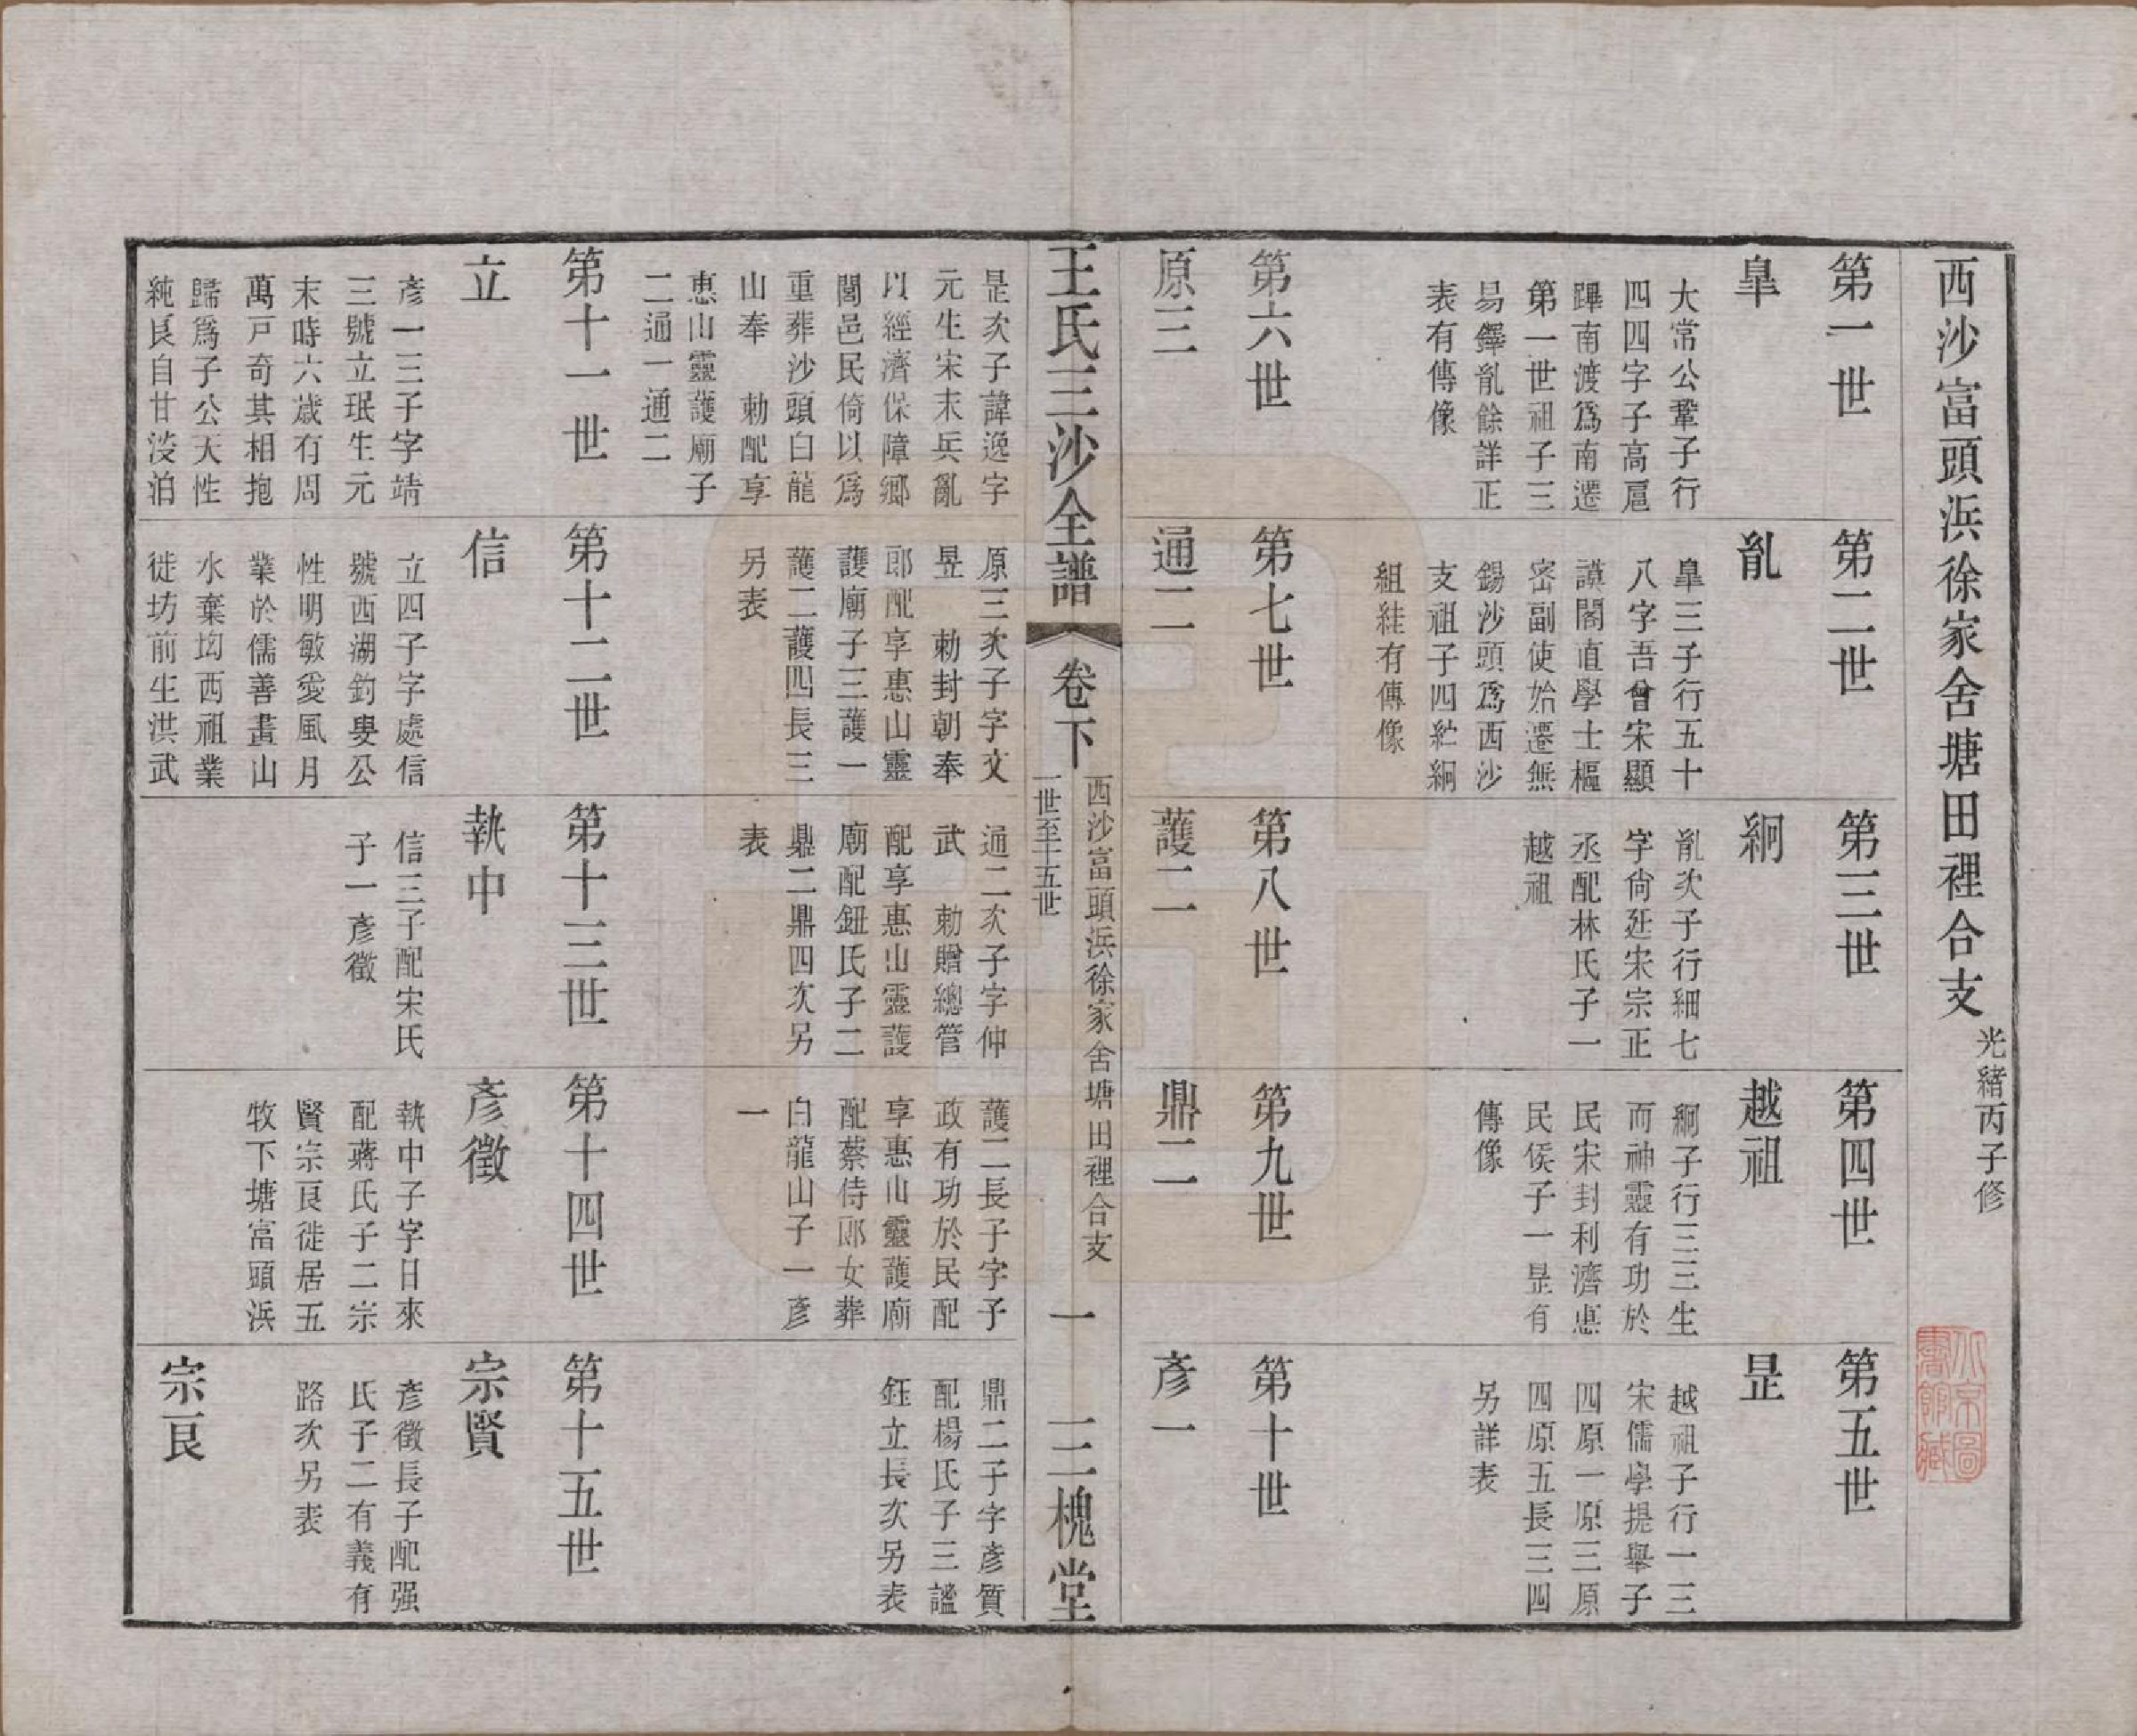 西沙富頭浜徐家舍塘田裡合支 光緒丙子修
第一世
皐
大常公鞏子行
四四字子高扈
蹕南渡爲南遷
第一世祖子三
易鐸亂餘詳正
表有傳像
第二世
亂
皐三子行五十
八字吾曾宋顯
謨閣直學士樞
密副使始遷無
錫沙頭爲西沙
支祖子四紦絅
組絓有傳像
第三世
絅
亂次子行細七
字尙延宋宗正
丞配林氏子一
越祖
第四世
越祖
絅子行三三生
而神靈有功於
民宋封利濟惠
民侯子一昰有
傳像
第五世
昰
越祖子行一三
宋儒學提舉子
四原一原三原
四原五長三四
另詳表
第六世
原三
昰次子諱逸字
元生宋末兵亂
以經濟保障鄉
閭邑民倚以爲
重葬沙頭白龍
山奉 勅配享
惠山靈護廟子
二通一通二
第七世
通二
原三次子字文
昱 勅封朝奉
郎配享惠山靈
護廟子三護一
護二護四長三
另表
第八世
護二
通二次子字仲
武 勅贈總管
配享惠山靈護
廟配鈕氏子二
鼎二鼎四次另
表
第九世
鼎二
護二長子字子
政有功於民配
享惠山靈護廟
配蔡侍郎女葬
白龍山子一彥
一
第十世
彥一
鼎二子字彥質
配楊氏子三謐
鈺立長次另表
王氏三沙全譜 卷下 西沙富頭浜徐家舍塘田裡合支 一世至十五世 一 三槐堂
第十一世
立
彥一三子字靖
三號立珉生元
末時六歲有周
萬戸奇其相抱
歸爲子公天性
純良自甘淡泊
第十二世
信
立四子字處信
號西湖釣叟公
性明敏愛風月
業於儒善畫山
水棄坸西祖業
徙坊前生洪武
第十三世
執中
信三子配宋氏
子一彥徵
第十四世
彥徵
執中子字日來
配蔣氏子二宗
賢宗良徙居五
牧下塘富頭浜
第十五世
宗賢
彥徵長子配强
氏子二有義有
路次另表
宗良